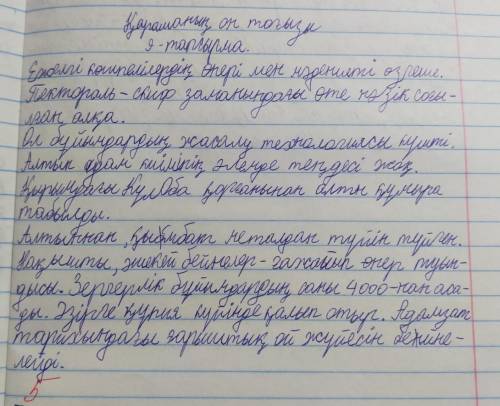 Қарашаның он тоғызы
9-тапсырма.
Ежелгі көшпелілердің өнері мен мәдениеті өзгеше.
Пектораль-скиф заманындағы өте нәзік соғы-
лған алқа.
Ол бұйымдардың жасалу технологиясы күшті.
Алтын адам киімінің әлемде теңдесі жоқ.
Қырымдағы КулОба қорғанынан алтн құмыра
табылды.
Алтыннан, қымбат металдан түйін түйген.
Нақышты, әшекей бейнелер-ғажайып өнер туын-
дысы. Зергерлік бұйымдардың саны 4000-нан аса-
ды. Әзірге құпия күйінде қалып отыр. Адамзат
тарихындағы ғарыштық ой жүйесін бейне-
лейді.
5